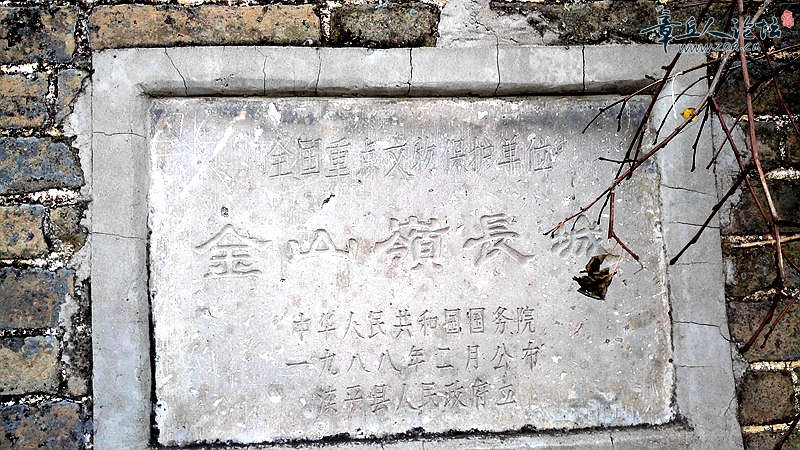 章丘人论坛
www.zqr.cn
全国重点文物保护单位
金山嶺長城
中华人民共和国国务院
一九八八年二月公布
滦平县人民政府立